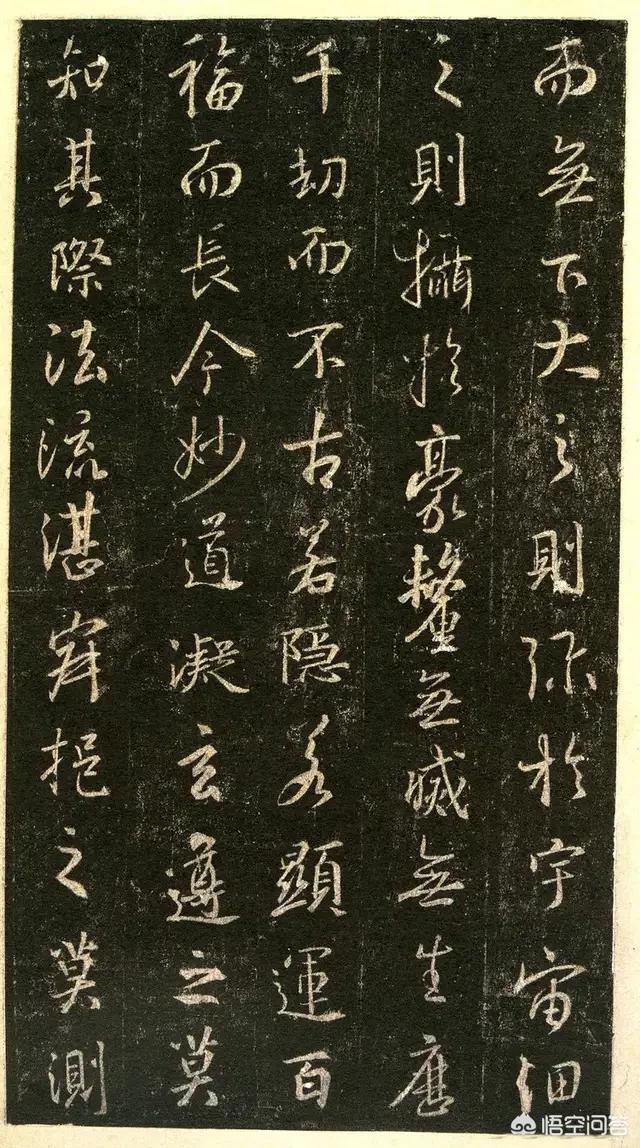 而無下大之則弥於宇宙細
之則攝於豪釐無滅無生歷
千劫而不古若隱若顯運百
福而長今妙道凝玄遵之莫
知其際法流湛寂挹之莫測
悟空问答